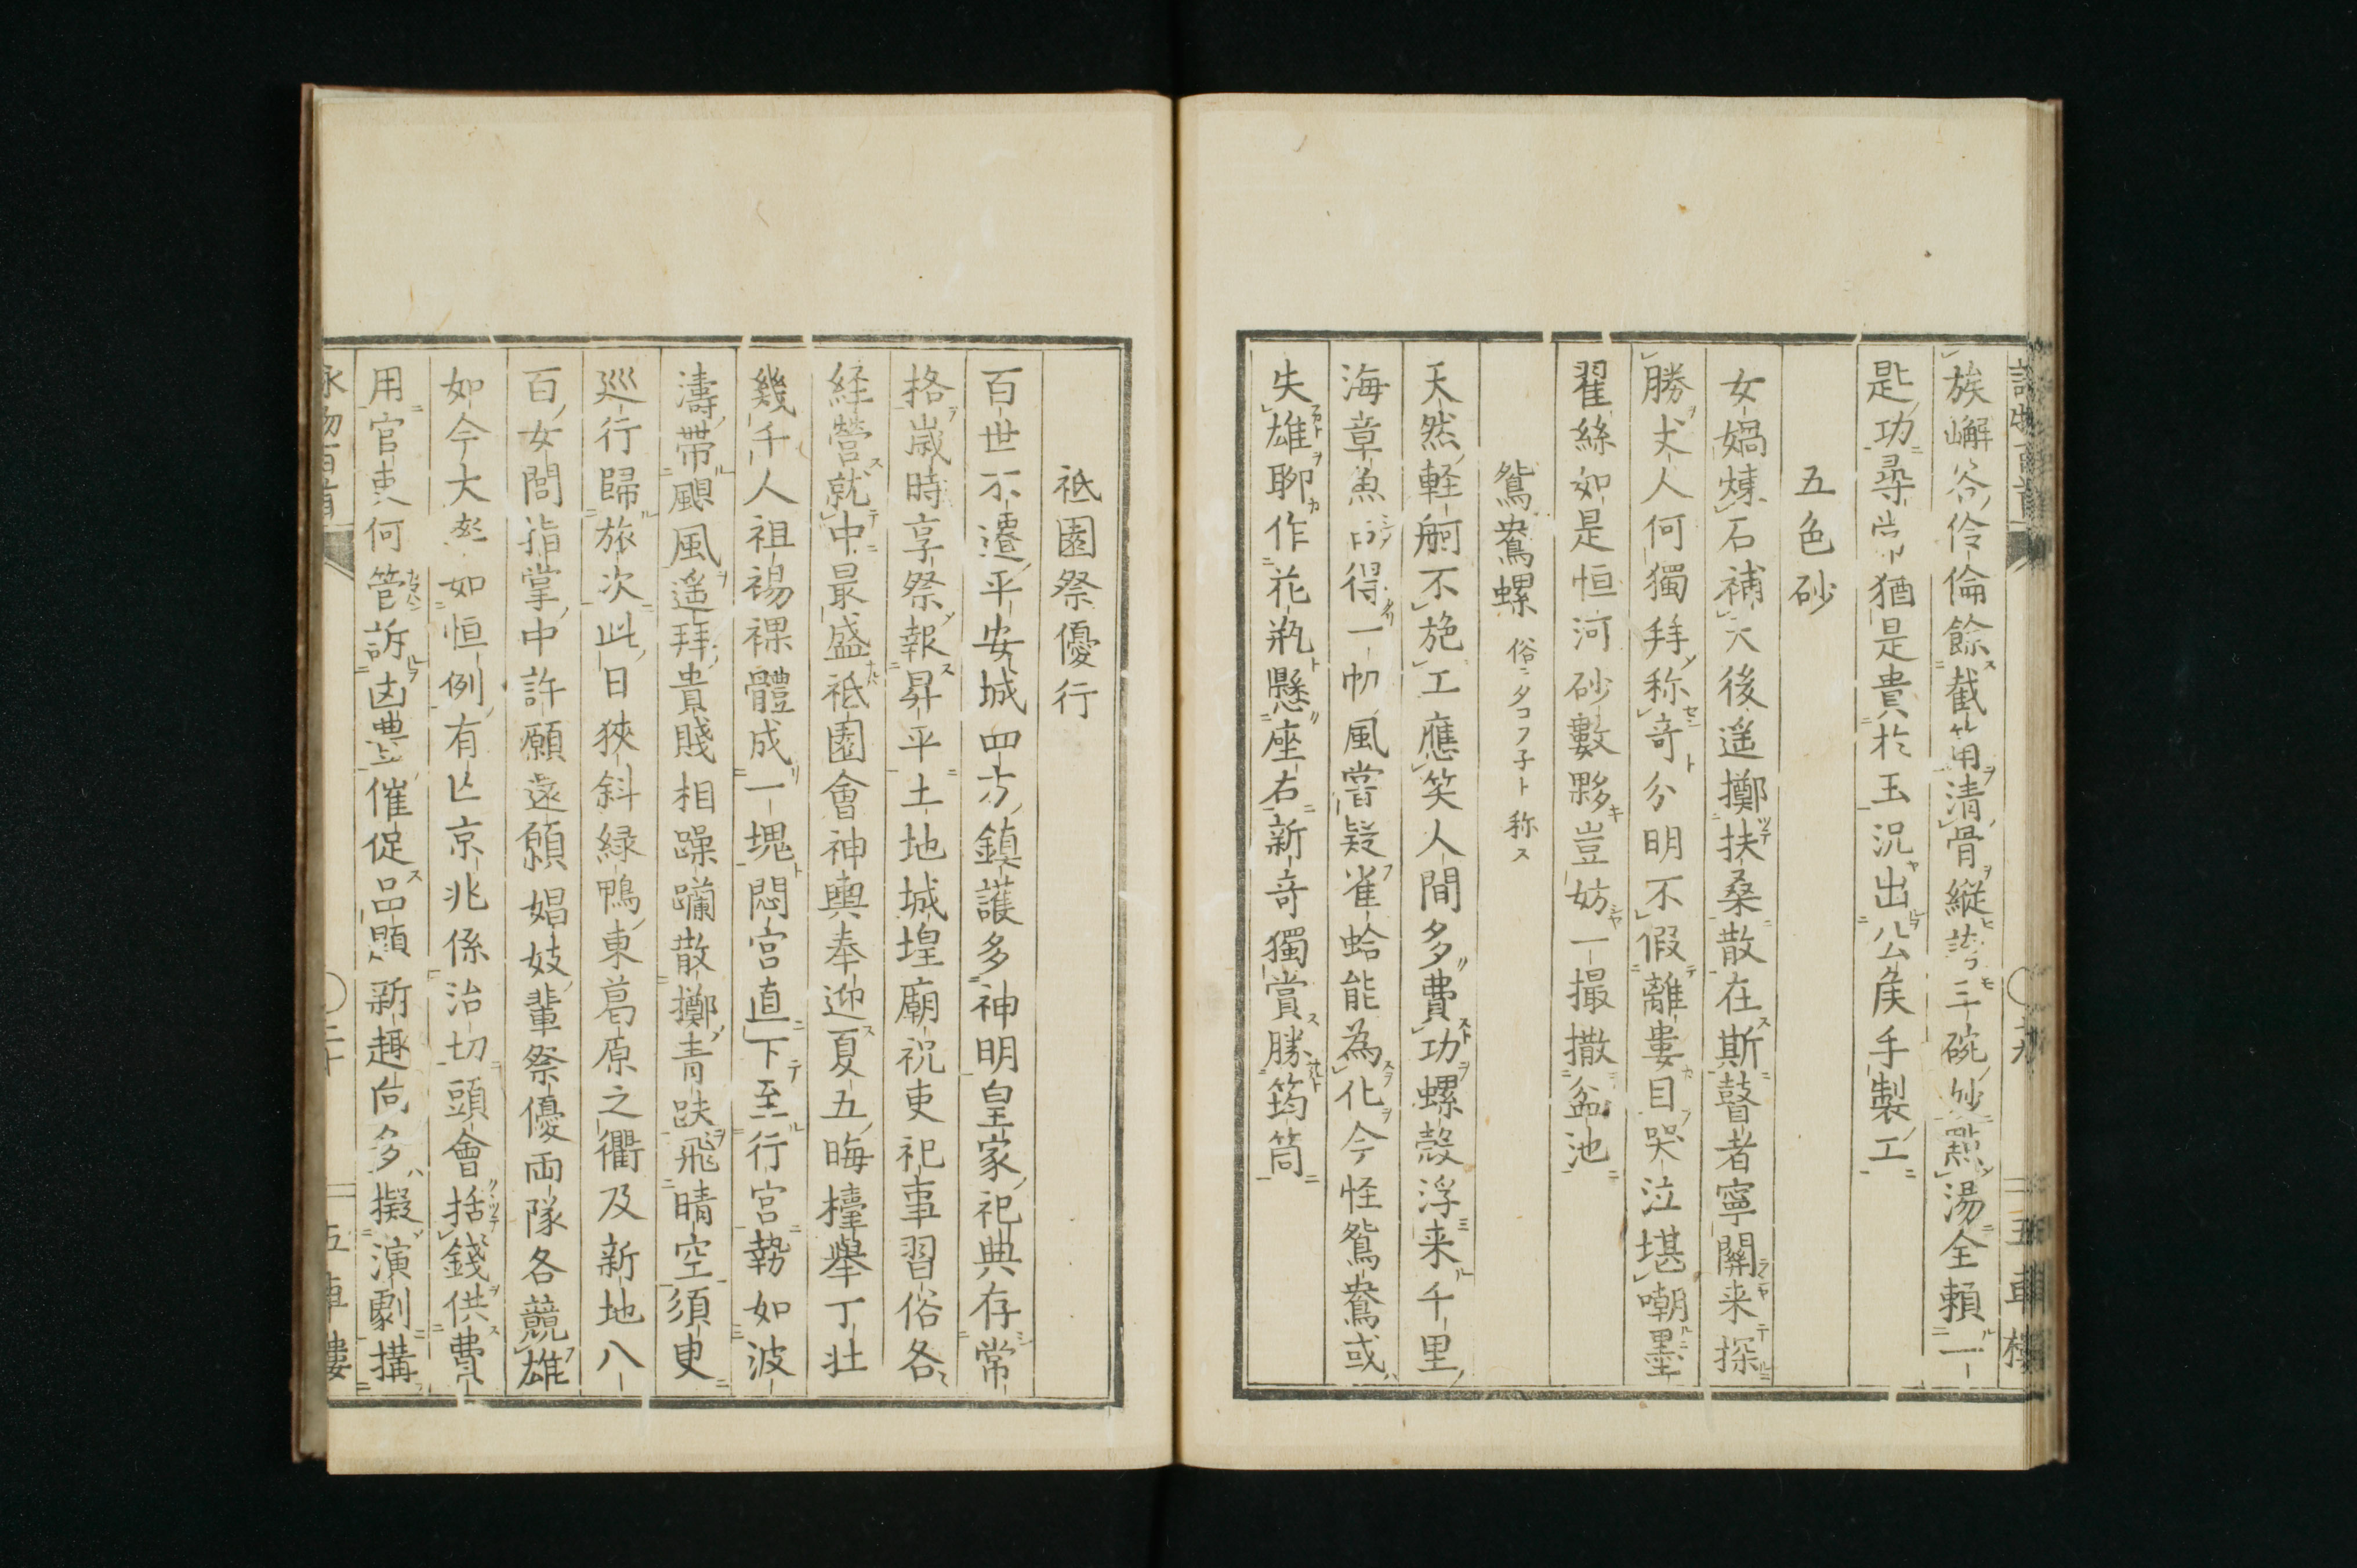 詠物百首
五車樓
族嶰谷伶倫餘截筩清骨縦誇三碗妙㸃湯全頼一
匙功尋常猶是貴於玉況出公侯手製工
五色砂
女媧煉石補天後遥擲扶桑散在斯瞽者寧關来探
勝丈人何獨拜称竒分明不假離婁目哭泣堪嘲墨
翟絲如是恒河砂數夥豈妨一撮撒盆池
鴛鴦螺 俗ニタコフ子ト称ス
天然軽舸不施工應笑人間多費功螺殻浮来千里
海章魚占得一帆風嘗疑雀蛤能為化今怪鴛鴦或
失雄聊作花瓶懸座右新竒獨賞勝筠筒
祗園祭優行
百世不遷平安城四方鎮護多神明皇家祀典存常
格歳時享祭報昇平土地城堭廟祝吏祀事習俗各
経營就中最盛祗園會神輿奉迎夏五晦擡舉丁壮
幾千人袒裼裸體成一塊悶宮直下至行宮勢如波
濤帯颶風遥拜貴賤相躁躙散擲青趺飛晴空須更
巡行歸旅次此日狹斜緑鴨東葛原之衢及新地八
百女閭指掌中許願還願娼妓輩祭優両隊各競雄
如今大率如恒例有亡京兆係治切頭會括錢供費
用官吏何管訴凶豊催促品題新趣向多擬演劇搆
詠物百首
二十
五車樓